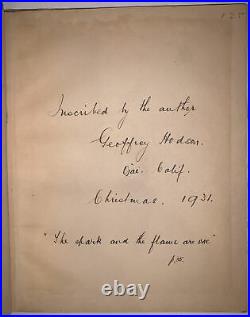 125
Inscribed by the author
Geoffrey Hodson.
Ojai. Calif.
Christmas. 1931.
"The spark and the flame are one"